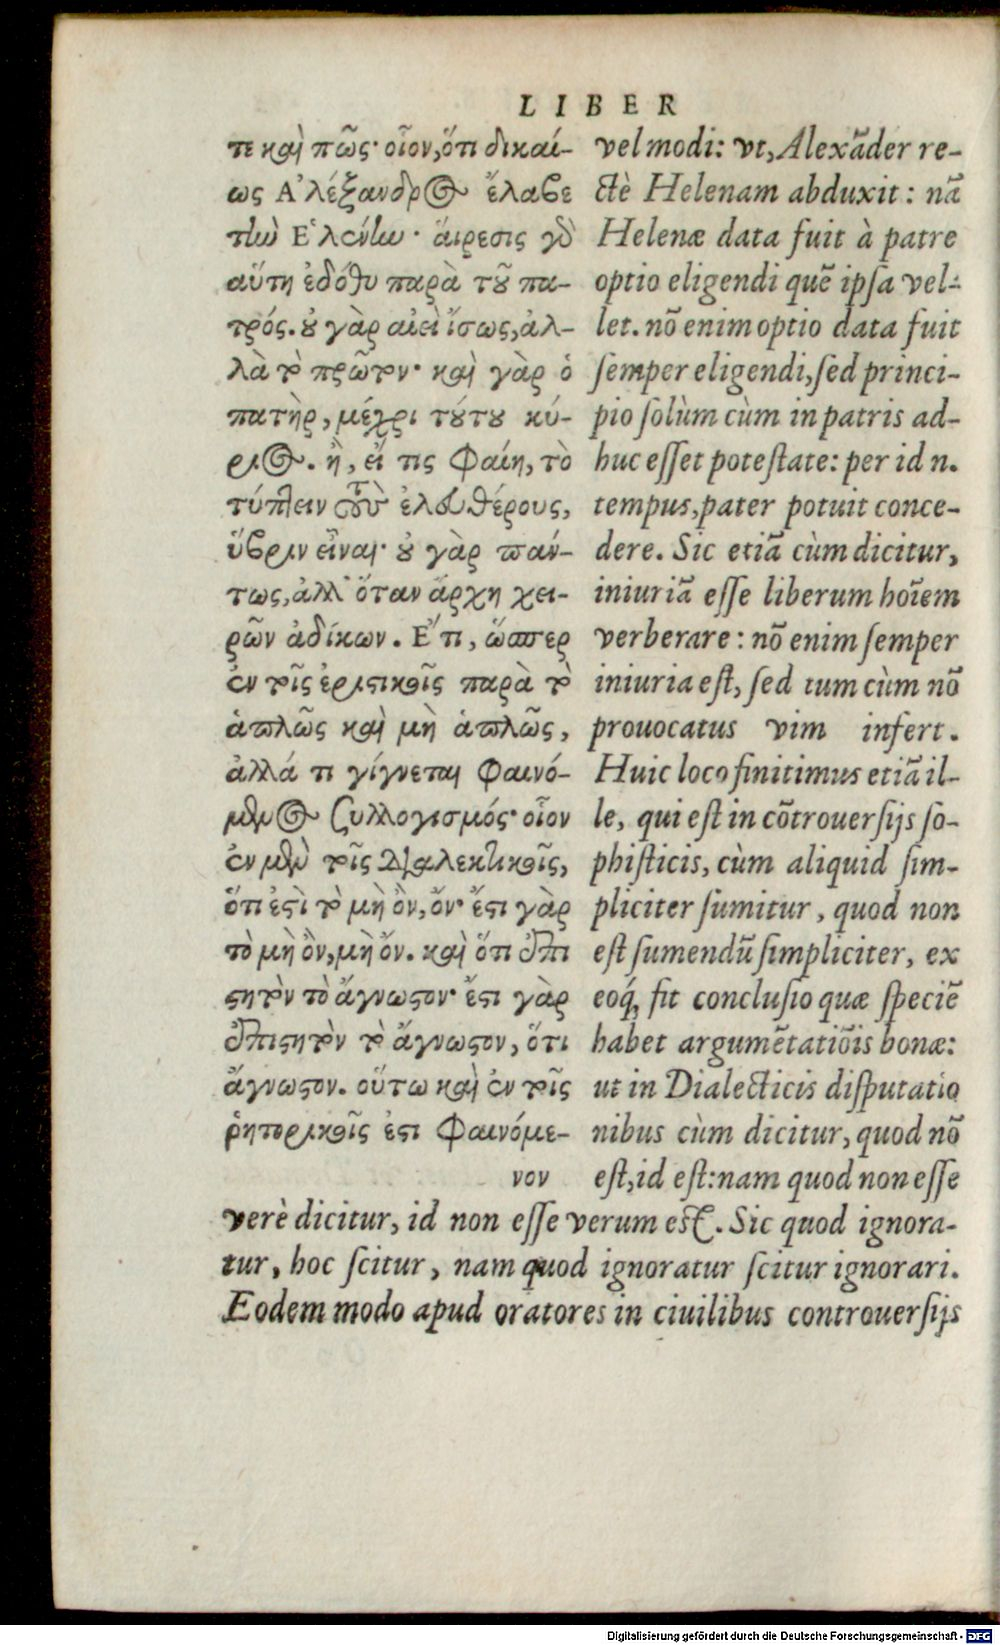 LIBER
τε καὶ πῶς· οἷον, ὅτι δικαί-
ως Ἀλέξανδρος ἔλαβε
τὴν Ἑλένην· αἵρεσις γὸ
αὕτη ἐδόθη παρὰ τοῦ πα-
τρός. οὐ γὰρ αἰεὶ ἴσως, ἀλ-
λὰ τὸ πρῶτον· καὶ γὰρ ὁ
πατὴρ, μέχρι τούτου κύ-
ριος. ἢ, εἴ τις φαίη, τὸ
τύπτειν τοὺς ἐλευθέρους,
ὕβριν εἶναι· οὐ γὰρ πάν-
τως, ἀλλ' ὅταν ἄρχη χει-
ρῶν ἀδίκων. Ἔτι, ὥσπερ
ἐν τοῖς ἐριστικοῖς παρὰ τὸ
ἁπλῶς καὶ μὴ ἁπλῶς,
ἀλλά τι γίγνεται φαινό-
μενος συλλογισμός· οἷον
ἐν μὲν τοῖς διαλεκτικοῖς,
ὅτι ἐστὶ τὸ μὴ ὂν, ὄν· ἔστι γὰρ
τὸ μὴ ὂν, μὴ ὄν. καὶ ὅτι ἐπι
στητὸν τὸ ἄγνωστον· ἔστι γὰρ
ἐπιστητὸν τὸ ἄγνωστον, ὅτι
ἄγνωστον. οὕτω καὶ ἐν τοῖς
ῥητορικοῖς ἐστι φαινόμε-
νον
vel modi: vt, Alexāder re-
ctè Helenam abduxit: nā
Helenæ data fuit à patre
optio eligendi quē ipſa vel-
let. nō enim optio data fuit
ſemper eligendi, ſed princi-
pio ſolùm cùm in patris ad-
huc eſſet poteſtate: per id n.
tempus, pater potuit conce-
dere. Sic etiā cùm dicitur,
iniuriā eſſe liberum hoīem
verberare: nō enim ſemper
iniuria eſt, ſed tum cùm nō
prouocatus vim infert.
Huic loco finitimus etiā il-
le, qui eſt in cōtrouerſijs ſo-
phiſticis, cùm aliquid ſim-
pliciter ſumitur, quod non
eſt ſumendū ſimpliciter, ex
eoq́; fit concluſio quæ ſpeciē
habet argumētatiōis bonæ:
ut in Dialecticis diſputatio
nibus cùm dicitur, quod nō
eſt, id eſt: nam quod non eſſe
verè dicitur, id non eſſe verum eſt. Sic quod ignora-
tur, hoc ſcitur, nam quod ignoratur ſcitur ignorari.
Eodem modo apud oratores in ciuilibus controuerſijs
Digitalisierung gefördert durch die Deutsche Forschungsgemeinschaft - DFG